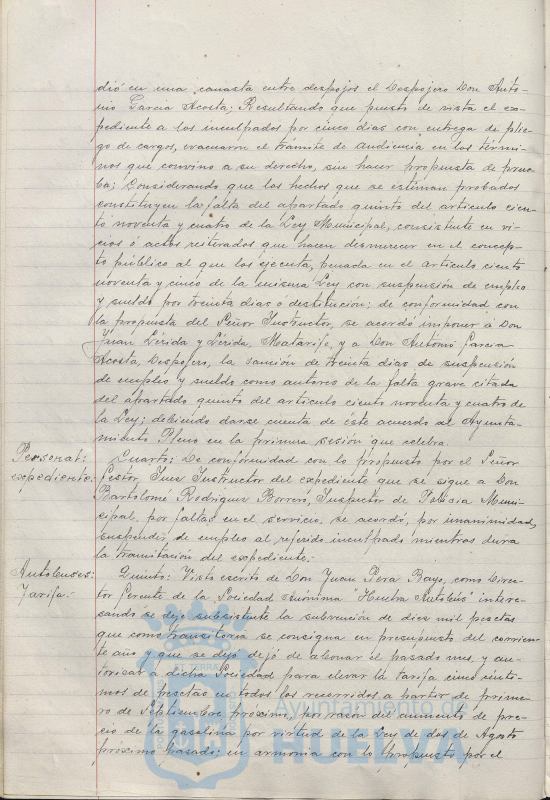 dió en una canasta entre despojos el Despojero Don Anto-
nio Garcia Acosta; Resultando que puesto de vista el ex-
pediente a los inculpados por cinco dias con entrega de plie-
go de cargos, evacuaron el trámite de audiencia en los térmi-
nos que convino a su derecho, sin hacer propuesta de prue-
ba; Considerando que los hechos que se estiman probados
constituyen la falta del apartado quinto del articulo cien-
to noventa y cuatro de la Ley Municipal, consistente en vi-
cios ó actos reiterados que hacen desmerecer en el concep-
to público al que los ejecuta, penada en el articulo ciento
noventa y cinco de la misma Ley con suspensión de empleo
y sueldo por treinta dias o destitución; de conformidad con
la propuesta del Señor Instructor, se acordó imponer á Don
Juan Lérida y Lerida, Matarife, y a Don Antonio Garcia
Acosta, Despojero, la sanción de treinta dias de suspensión
de empleo y sueldo como autores de la falta grave citada
del apartado quinto del articulo ciento noventa y cuatro de
la Ley; debiendo darse cuenta de éste acuerdo al Ayunta-
miento Pleno en la primera sesión que celebra.
Personal:
expediente:
Cuarto: De conformidad con lo propuesto por el Señor
Gestor, Juez Instructor del expediente que se sigue a Don
Bartolomé Rodriguez Borrero, Inspector de Policia Muni-
cipal, por faltas en el servicio, se acordó, por unanimidad,
suspender, de empleo al referido inculpado mientras dura
la tramitación del expediente.-
Autobuses:
Tarifa.-
Quinto: Visto escrito de Don Juan Pera Bayo, como Direc-
tor Gerente de la Sociedad anónima "Huelva Autobús" intere-
sando se deje subsistente la subvención de diez mil pesetas
que como transitoria se consigna en presupuesto del corrien-
te año y que se dejó dejó de abonar el pasado mes, y au-
torizar a dicha Sociedad para elevar la tarifa cinco cénti-
mos de pesetas en todos los recorridos a partir de prime-
ro de Septiembre próximo, por razón del aumento de pre-
cio de la gasolina por virtud de la Ley de dos de Agosto
proximo pasado; en armonia con lo propuesto por el
Ayuntamiento de
HUELVA